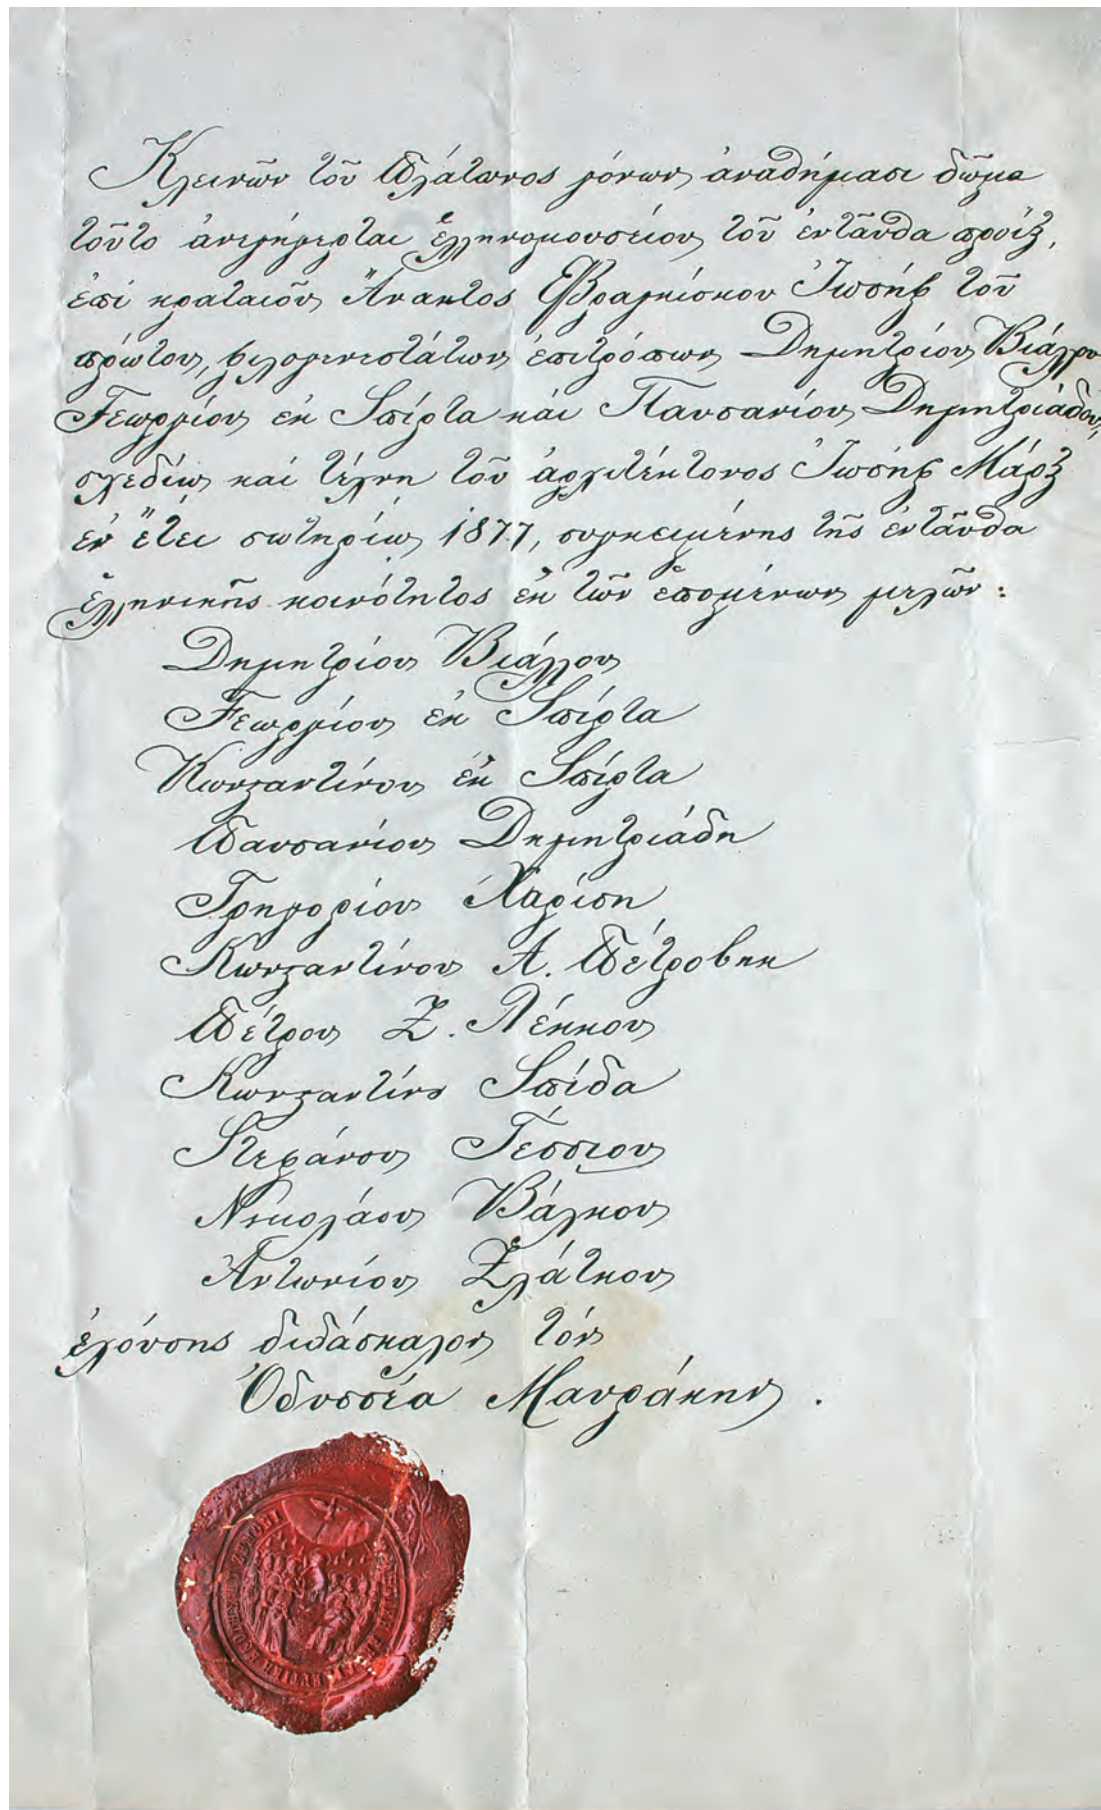 Κλεινῶν τοῦ Πλάτωνος γόνων ἀναθήμασι δῶμα
τοῦτο ἀνεγήγερται ἑλληνομουσείου τοῦ ἐνταῦθα προίξ,
ἐπὶ κραταιοῦ Ἄνακτος Φραγκίσκου Ἰωσὴφ τοῦ
πρώτου, φιλογενεστάτων ἐπιτρόπων Δημητρίου Βιάλλου
Γεωργίου ἐκ Σπίρτα καὶ Παυσανίου Δημητριάδου,
σχεδίῳ καὶ τέχνῃ τοῦ ἀρχιτέκτονος Ἰωσὴφ Μάρξ
ἐν ἔτει σωτηρίῳ 1877, συγκειμένης τῆς ἐνταῦθα
ἑλληνικῆς κοινότητος ἐκ τῶν ἑπομένων μελῶν:
Δημητρίου Βιάλλου
Γεωργίου ἐκ Σπίρτα
Κωνςαντίνου ἐκ Σπίρτα
Παυσανίου Δημητριάδη
Γρηγορίου Χαρίση
Κωνςαντίνου Α. Πέτροβικ
Πέτρου Ζ. Λέκκου
Κωνςαντίνου Σπίδα
Στεφάνου Γέσσιου
Νικολάου Βάλκου
Ἀντωνίου Ζλάτκου
ἐχούσης διδάσκαλον τὸν
Ὀδυσσέα Μαυράκην.